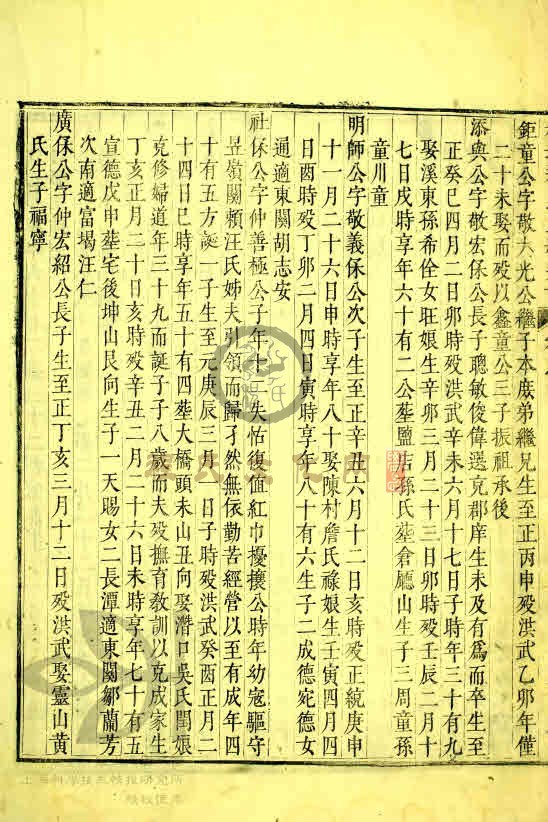 鉅童公字敬大光公繼子本庻弟繼兄生至正丙申歿洪武乙卯年僅
二十未娶而歿以鑫童公三子振祖承後
添與公字敬宏保公長子聰敏俊偉選充郡庠生未及有爲而卒生至
正癸巳四月二日卯時歿洪武辛未六月十七日子時年三十有九
娶溪東孫希佺女旺娘生辛卯三月二十三日卯時歿壬辰二月十
七日戌時享年六十有二公塟鹽店孫氏塟倉廳山生子三周童孫
童川童
明師公字敬義保公次子生至正辛丑六月十二日亥時歿正統庚申
十一月二十六日申時享年八十娶陳村詹氏祿娘生壬寅四月十
日酉時歿丁卯二月四日寅時享年八十有六生子二成德宛德女
適適東關胡志安
社保公字仲善極公子年十三失怙復值紅巾擾攘公時年幼寇驅守
昱嶺關賴汪氏姊夫引領而歸孑然無依勤苦經營以至有成年四
十有五方誕一子生至元庚辰三月八日子時歿洪武癸酉正月二
十四日巳時享年五十有四塟大橋頭未山丑向娶潛口吳氏閏娘
克修婦道年三十九而誕子子八歲而夫歿撫育敎訓以克成家生
丁亥正月二十日亥時歿辛丑二月二十六日未時享年七十有五
宣德戊申塟宅後坤山艮向生子一天賜女二長潭適東關鄒蘭芳
次南適富堨汪仁
廣保公字仲宏紹公長子生至正丁亥三月十二日歿洪武娶靈山黄
氏生子福寧